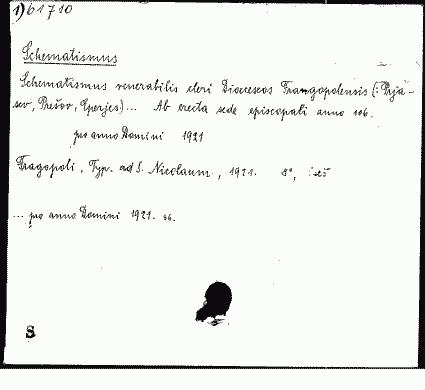 1) 61710
Schematismus
Schematismus venerabilis cleri Dioeceseos Frangopolensis (: Prja-
šev, Prešov, Eperjes)... Ab erecta sede episcopali anno 106.
pro anno Domini 1921
Fragopoli, Typ. ad S. Nicolaum, 1921. 8°,
... pro anno Domini 1921. 66.
S